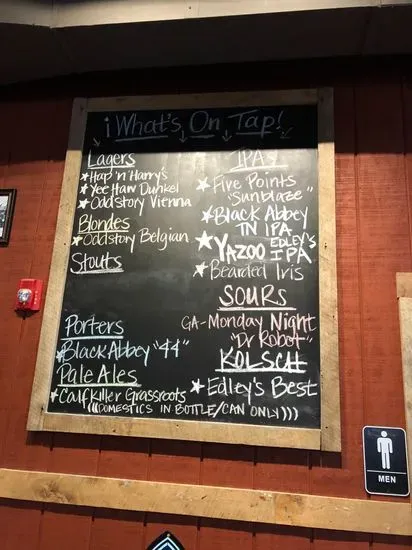 ¡What's On Tap!
Lagers
Hap'n'Harry's
Yee Haw Dunkel
Oddstory Vienna
Blondes
Oddstory Belgian
Stouts
Porters
Black Abbey "44"
Pale Ales
Calfkiller Grassroots
IPAs
Five Points
"Sunblaze"
Black Abbey
TN IPA
YAZOO EDLEY'S
IPA
Bearded Iris
SOURS
GA-Monday Night
"Dr Robot"
KOLSCH
Edley's Best
(((DOMESTICS IN BOTTLE/CAN ONLY)))
MEN